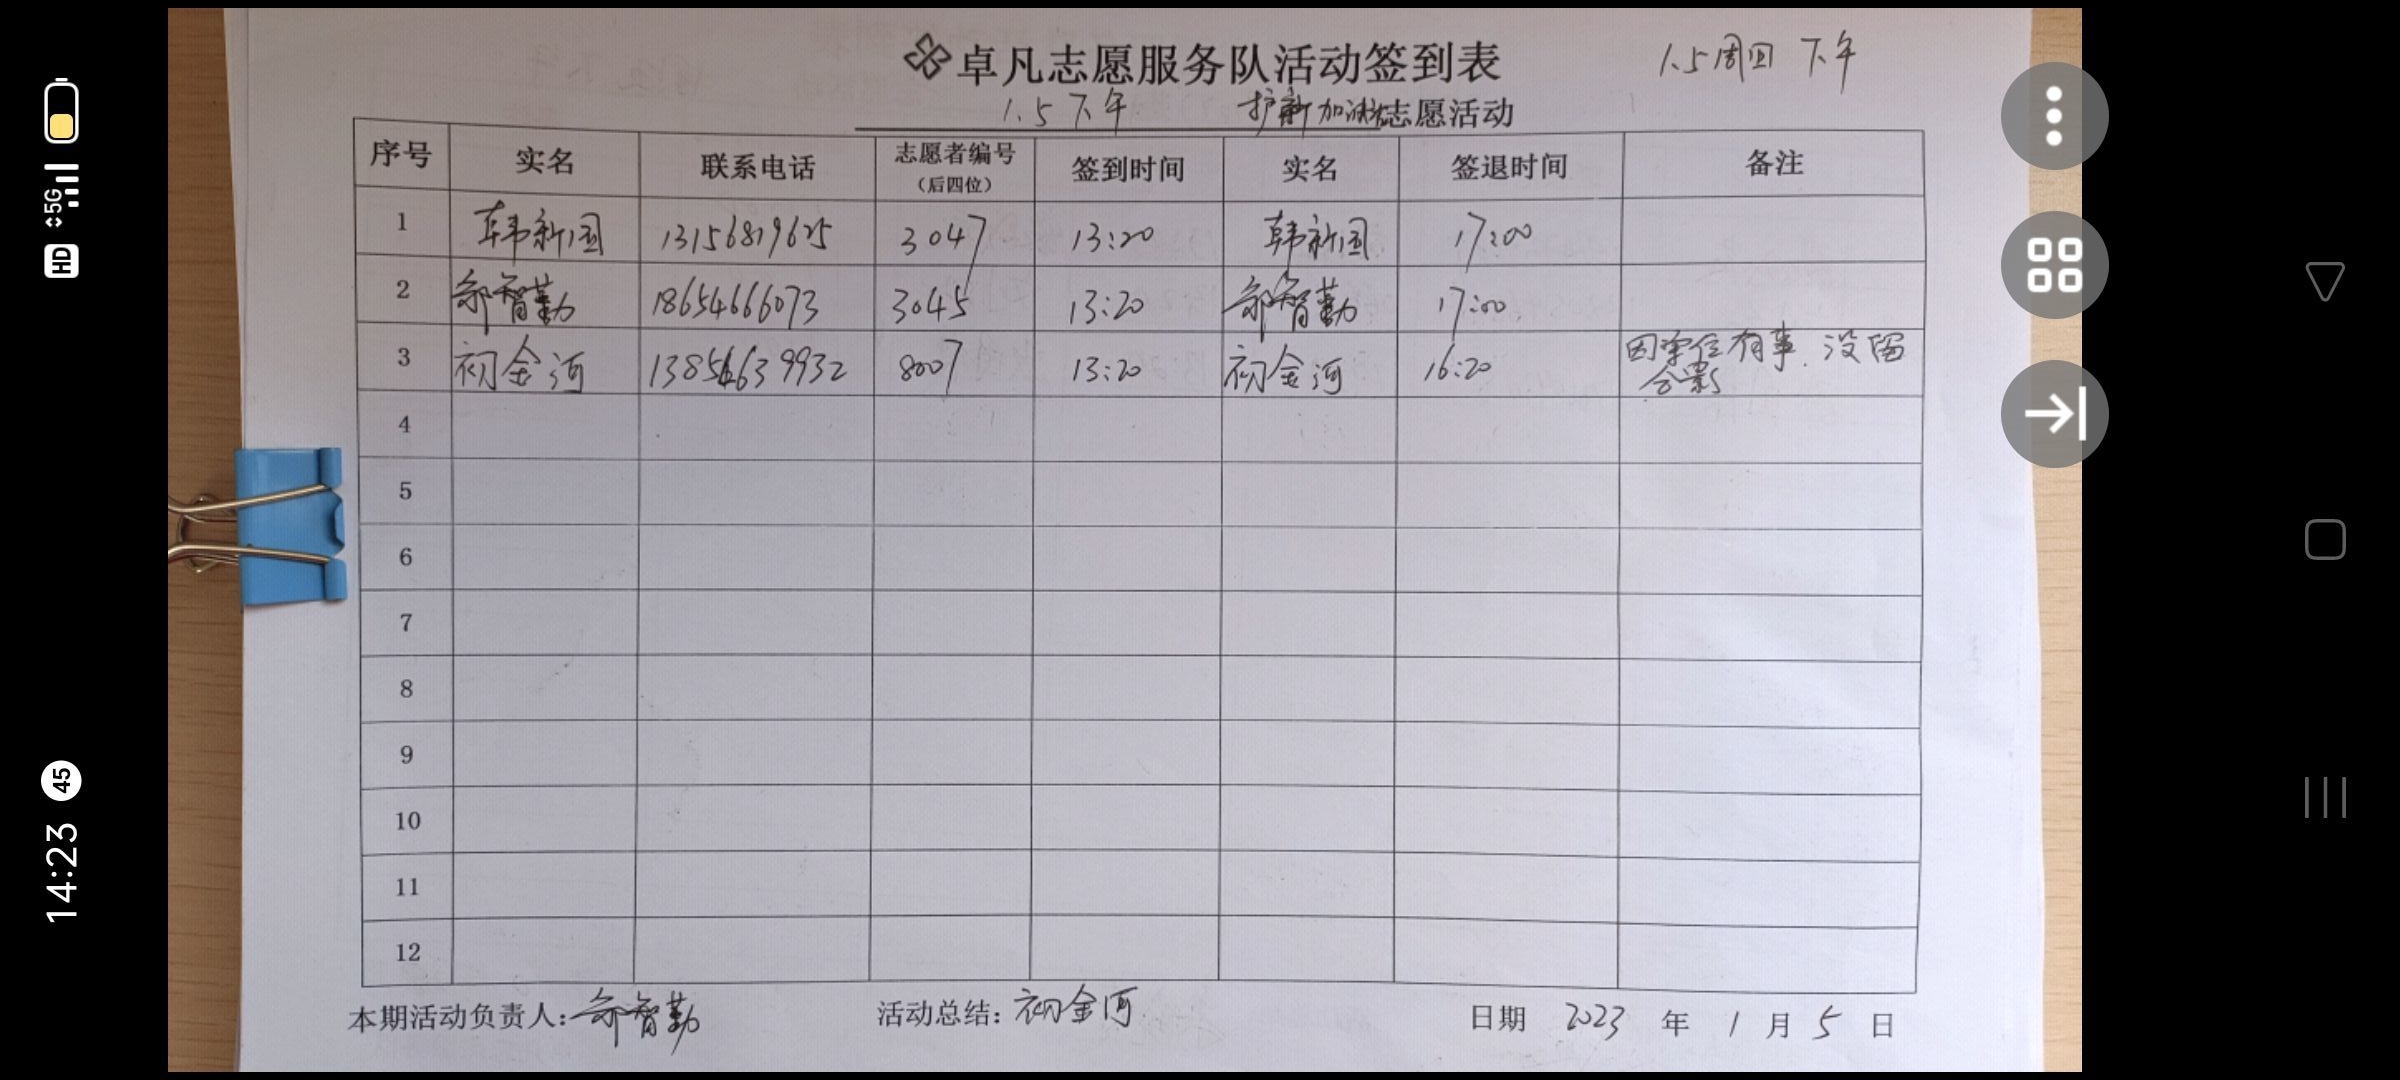 卓凡志愿服务队活动签到表
1.5周四 下午
1.5 下午 护新加油站志愿活动
序号 实名 联系电话 志愿者编号（后四位） 签到时间 实名 签退时间 备注
1 韩新国 13156819625 3047 13:20 韩新国 17:00
2 智勤 18654666073 3045 13:20 智勤 17:00
3 初金河 13854639932 8007 13:20 初金河 16:20 因单位有事.没留合影
4
5
6
7
8
9
10
11
12
本期活动负责人: 智勤 活动总结: 初金河 日期 2023 年 1 月 5 日
HD 5G
14:23 45